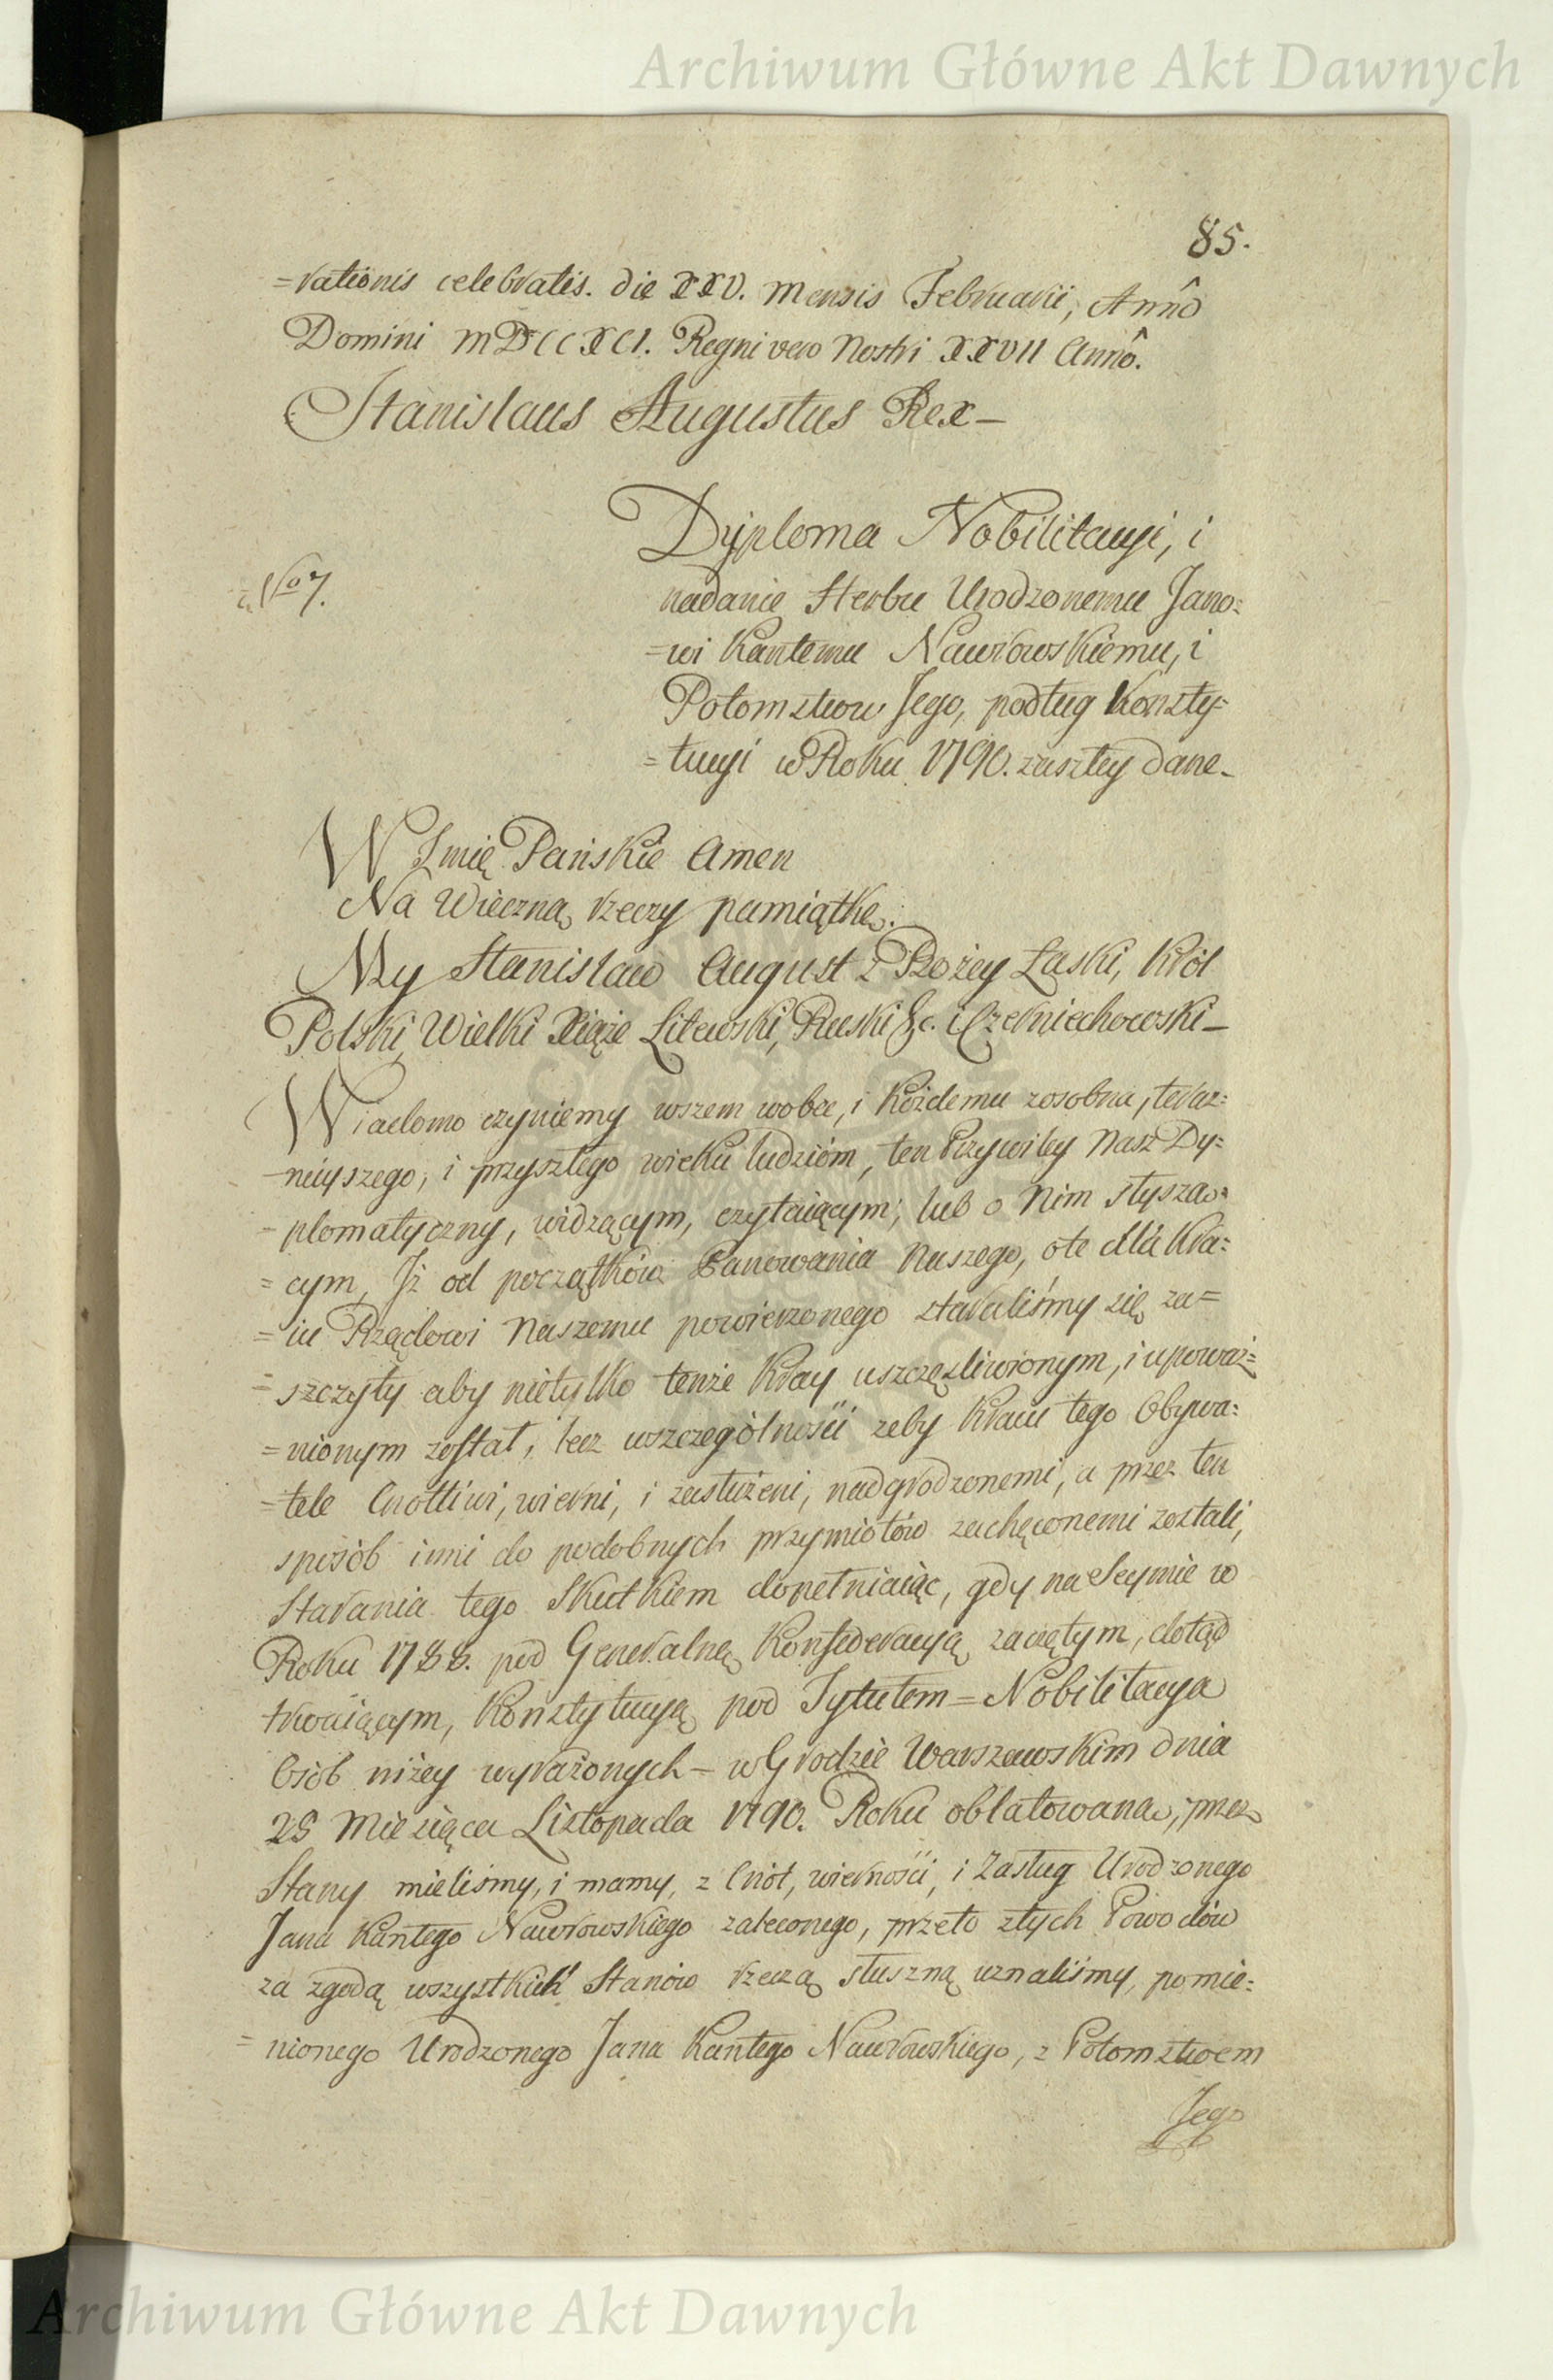 Archiwum Główne Akt Dawnych
85.
=rationis celebratis. die XXV. mensis Februarii, Annô
Domini MDCCXCI. Regni vero Nostri XXVII Annô.
Stanislaus Augustus Rex—
Dyploma Nobilitacyi, i
No 7.
nadanie Herbu Urodzonemu Jano=
=wi Kantemu Nawrowskiemu, i
Potomstwu Jego, podług Konsty=
=tucyi w Roku 1790. zaszłey dane—
W Imię Pańskie Amen
Na Wieczną rzeczy pamiątkę.
My Stanisław August z Bożey Łaski, Król
Polski, Wielki Xiąże Litewski, Ruski &c. i Czerniechowski—
Wiadomo czyniemy wszem wobec, i każdemu zosobna, teraz=
=nieyszego, i przyszłego wieku ludzióm, ten Przywiley Nasz Dy=
=plomatyczny, widzącym, czytaiącym, lub o Nim słyszą=
=cym, Iż od początków Panowania Naszego, ote dla Kra=
=iu Rządowi Naszemu powierzonego staraliśmy się za=
=szczyty aby nietylko tenże Kray uszczęśliwionym, i upoważ=
=nionym został, lecz wszczególności żeby Kraiu tego Obywa=
=tele Cnotliwi, wierni, i zasłużeni, nadgrodzonemi, a przez ten
sposób inni do podobnych przymiotów zachęconemi zostali,
Starania tego Skutkiem dopełniaiąc, gdy na Seymie w
Roku 1788. pod Generalną Konfederacyą zaczętym, dotąd
trwaiącym, Konstytucyą pod Tytułem = Nobilitacya
Osób niżey wyrażonych — w Grodzie Warszawskim dnia
29 Miesiąca Listopada 1790. Roku oblatowaną, przez
Stany mieliśmy, i mamy, z Cnót, wierności, i Zasług Urodzonego
Jana Kantego Nawrowskiego zaleconego, przeto ztych Powodów
za zgodą wszystkich Stanów rzeczą słuszną uznaliśmy, pomie=
=nionego Urodzonego Jana Kantego Nawrowskiego, z Potomstwem
Jego
Archiwum Główne Akt Dawnych